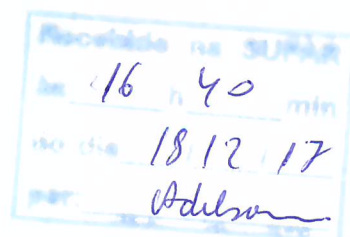 Recebido na SUPAR
às 16 h 40 min
no dia 18 12 17
por: Adilson